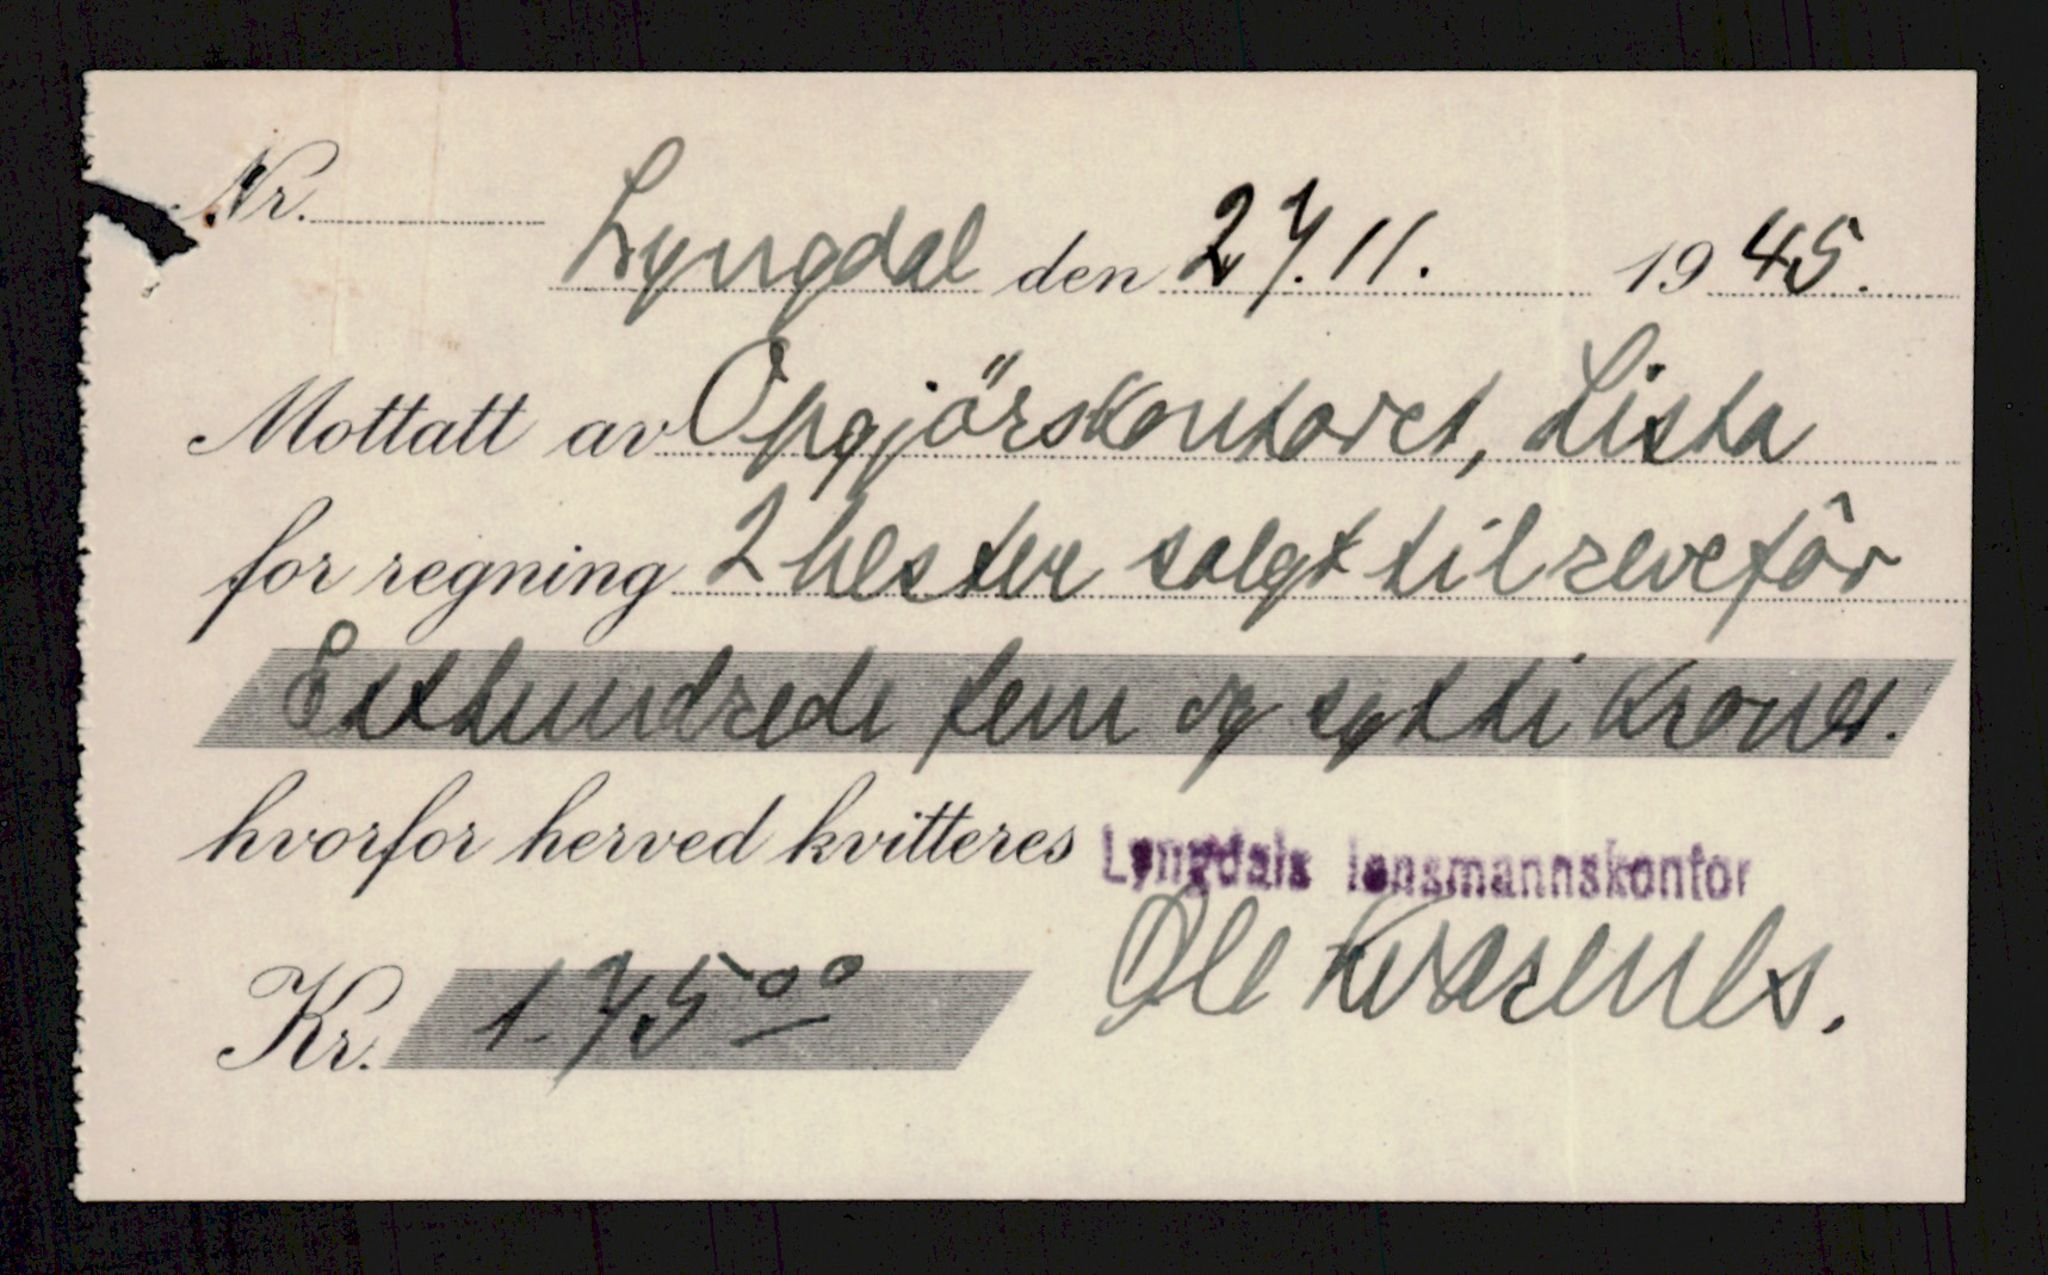 Nr.
Lyngdal den 27.11. 1945.
Mottatt av Opgjörskontoret, Lista
for regning 2 hester solgt til revefôr
Etthundrede fem og sytti kroner.
hvorfor herved kvitteres Lyngdals lensmannskontor
Kr. 175⁰⁰ Ole Kvarenes.